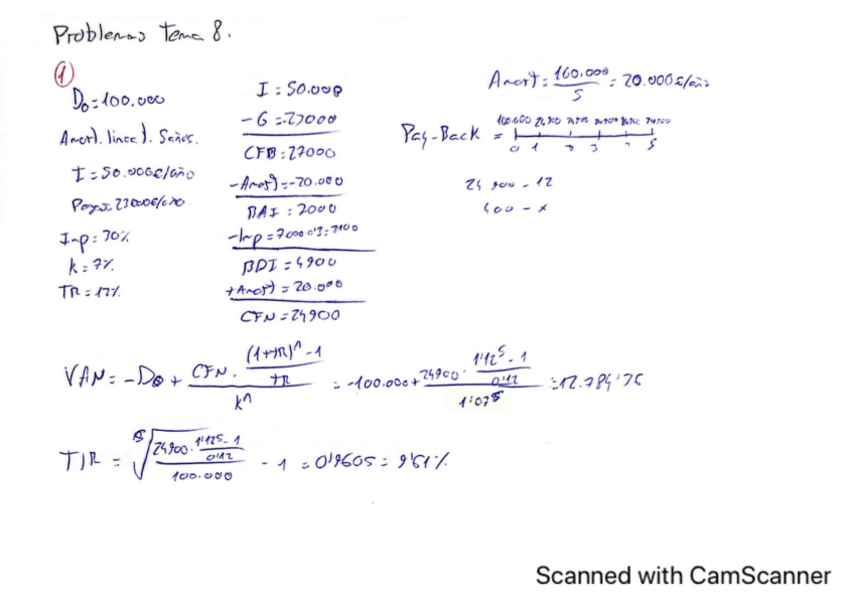 Problemas tema 8.
1
D₀=100.000
Amort. lineal. 5años.
I=50.000€/año
Pagos=23000€/año
Imp=30%
k=7%
TR=12%
I=50.000
-G=-23000
CFB=27000
-Amort=-20.000
BAI=7000
-Imp=7000·0'3=2100
BDI=4900
+Amort=20.000
CFN=24900
Amort=100.000/5=20.000€/año
Pay-Back = 100.000 24,900 24,900 24,900 24,900 24,900
0 1 2 3 4 5
24 900 - 12
400 - x
VAN=-D₀+(CFN·((1+TR)ⁿ-1)/TR)/kⁿ = -100.000+(24900·(1'12⁵-1)/0'12)/1'07⁵=12.784'76
TIR = ⁵√((24,900·(1'12⁵-1)/0'12)/100.000) - 1 = 0'9605 = 9'61%
Scanned with CamScanner